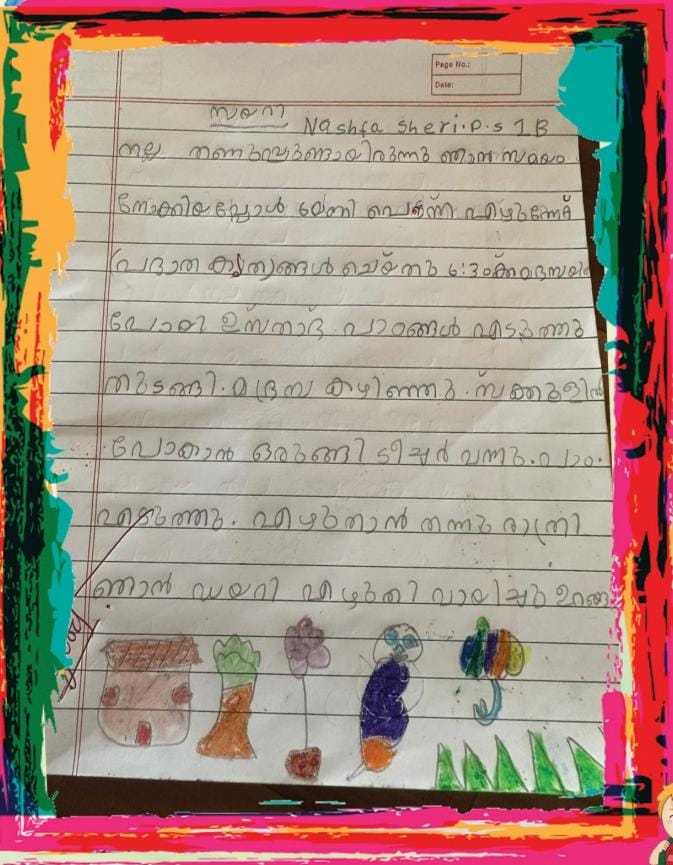 Page No.:
Date:
ഡയറി
Nashfa sheri.P.s 1B
നല്ല തണുപ്പുണ്ടായിരുന്നു ഞാൻ സമയം
നോക്കിയപ്പോൾ 6 മണി വെക്കം എഴുന്നേറ്റ്
പ്രഭാത കൃത്യങ്ങൾ ചെയ്തു 6:30ക്ക് മദ്രസയിൽ
പോയി ഉസ്താദ് പാഠങ്ങൾ എടുത്തു
തുടങ്ങി. മദ്രസ കഴിഞ്ഞു. സ്ക്കൂളിൽ
പോകാൻ ഒരുങ്ങി ടീച്ചർ വന്നു. പാഠം.
എടുത്തു. എഴുതാൻ തന്നു രാത്രി
ഞാൻ ഡയറി എഴുതി വായിച്ചു ഉറങ്ങ